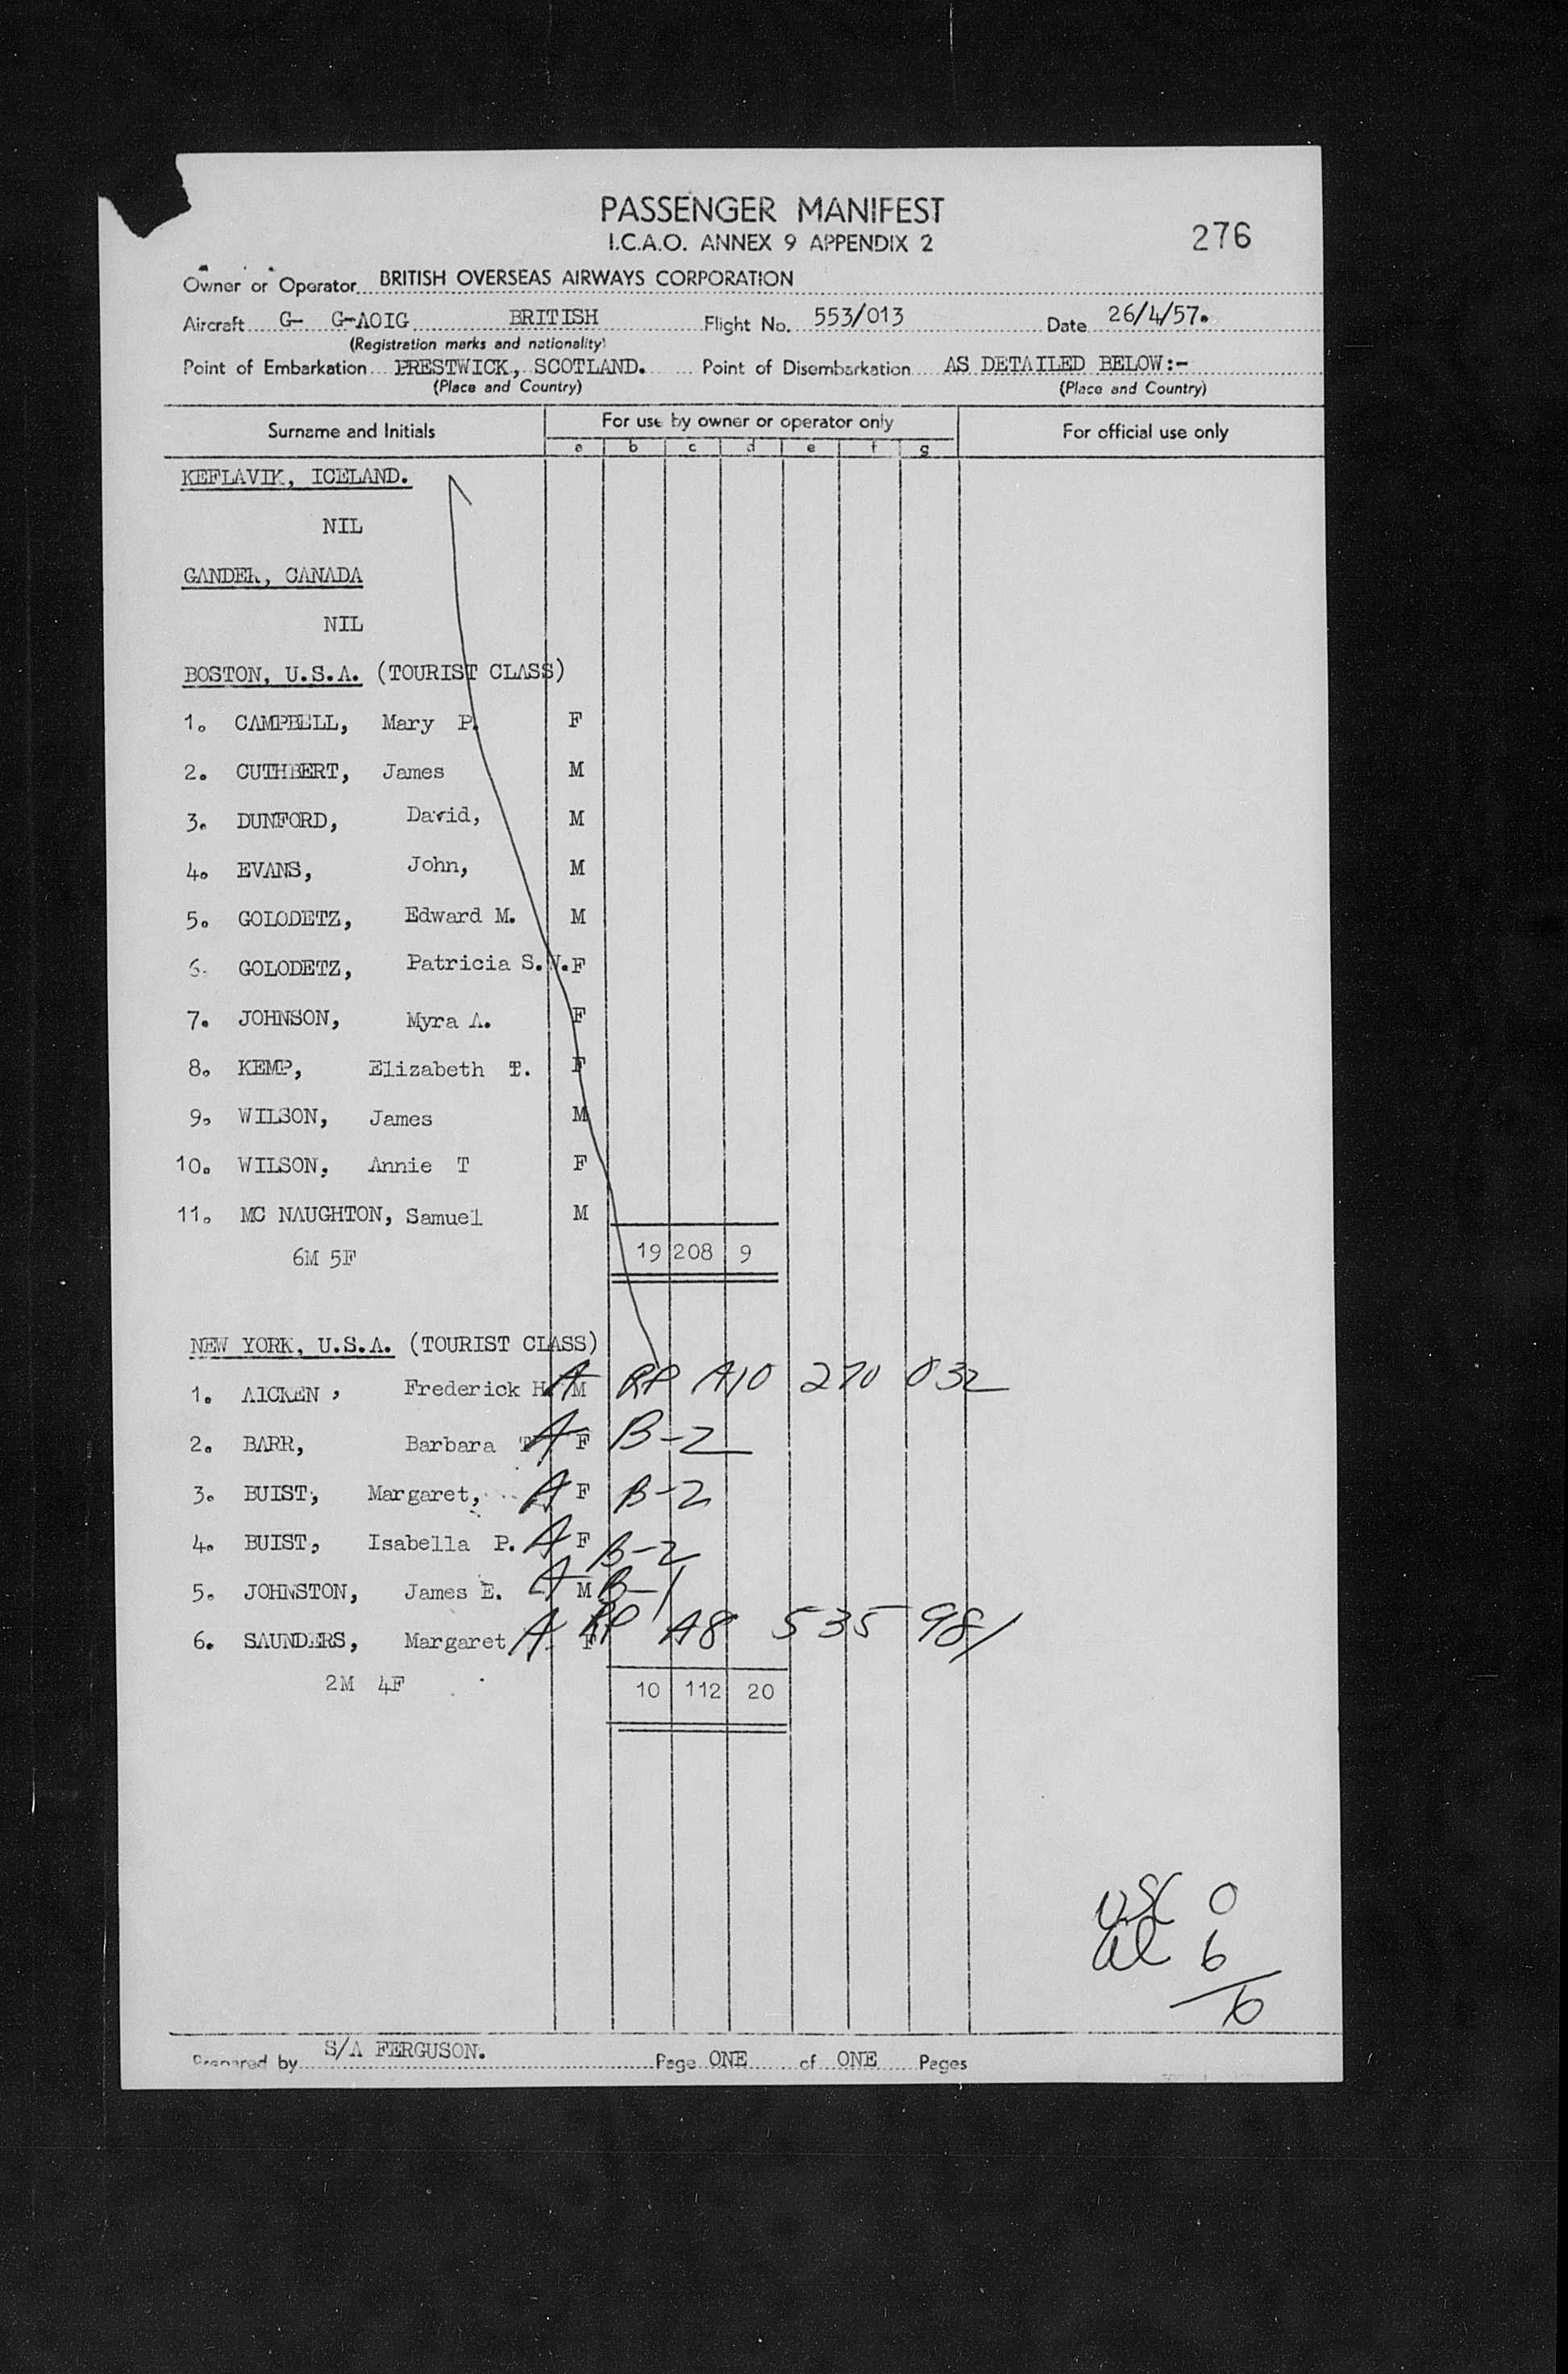 PASSENGER MANIFEST
I.C.A.O. ANNEX 9 APPENDIX 2
276
Owner or Operator BRITISH OVERSEAS AIRWAYS CORPORATION
Aircraft G- G-AOIG BRITISH Flight No. 553/013 Date 26/4/57.
(Registration marks and nationality)
Point of Embarkation PRESTWICK, SCOTLAND. Point of Disembarkation AS DETAILED BELOW:-
(Place and Country) (Place and Country)
Surname and Initials For use by owner or operator only For official use only
a b c d e f g
KEFLAVIK, ICELAND.
NIL
GANDER, CANADA
NIL
BOSTON, U.S.A. (TOURIST CLASS)
1. CAMPBELL, Mary P. F
2. CUTHBERT, James M
3. DUNFORD, David, M
4. EVANS, John, M
5. GOLODETZ, Edward M. M
6. GOLODETZ, Patricia S. F
7. JOHNSON, Myra A. F
8. KEMP, Elizabeth T. F
9. WILSON, James M
10. WILSON, Annie T F
11. MC NAUGHTON, Samuel M
6M 5F 19 208 9
NEW YORK, U.S.A. (TOURIST CLASS)
1. AICKEN, Frederick H. A M RP A10 270 032
2. BARR, Barbara T A F B-2
3. BUIST, Margaret, A F B-2
4. BUIST, Isabella P. A F B-2
5. JOHNSTON, James E. A M B-1
6. SAUNDERS, Margaret A F RP A8 535 981
2M 4F 10 112 20
USC 0
al 6
6
Prepared by S/A FERGUSON. Page ONE of ONE Pages